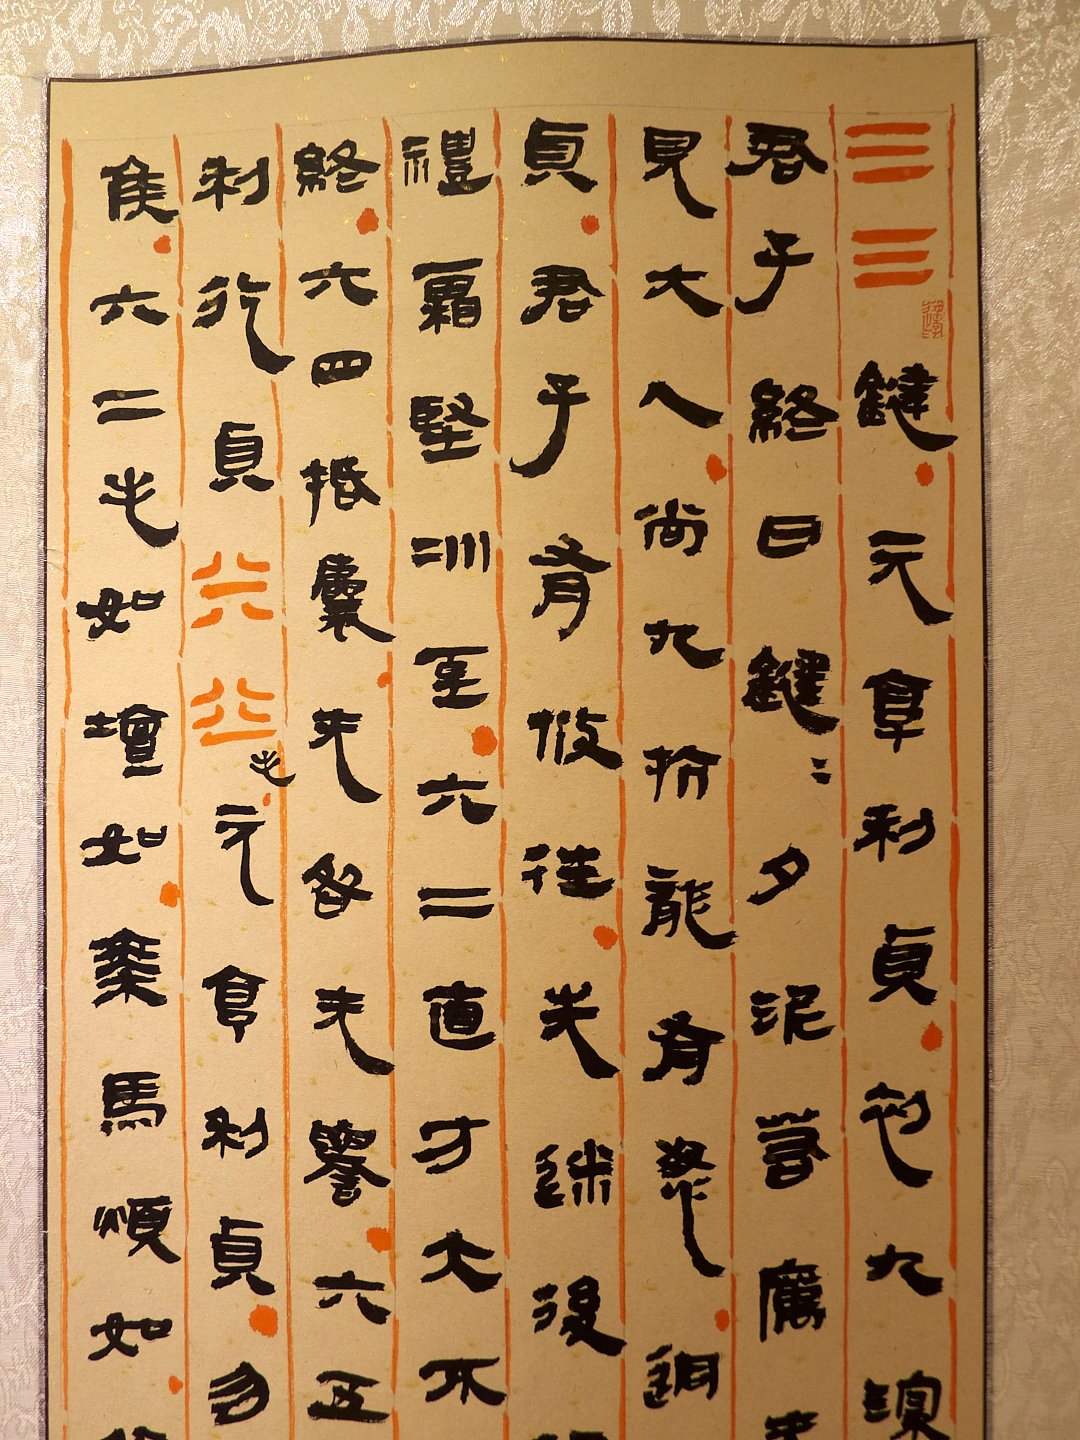 ䷀鍵元享利貞初九
君子終日鍵=夕泥若厲无
見大人尚九抗龍有悔迵
貞君子有攸往先迷後
禮霜堅冰至六二直方大不
終六四括囊无咎无譽六五
利永貞䷂屯元享利貞勿
侯六二屯如壇如乘馬煩如